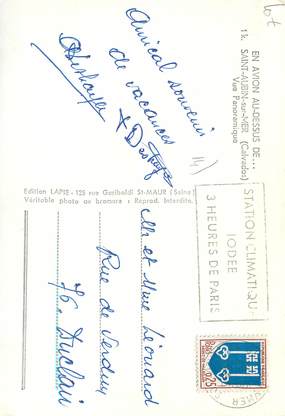 Lot
EN AVION AU-DESSUS DE...
1 k. SAINT-AUBIN-sur-MER (Calvados)
Vue Panoramique
Amical souvenir
de vacances
Edition LAPIE - 125 rue Garibaldi St-MAUR (Seine)
Véritable photo au bromure : Reprod. Interdite.
STATION CLIMATIQU
IODEE
3 HEURES DE PARIS
0,25
Mr et Mme Léonard
Rue de Verdun
76. Duclair